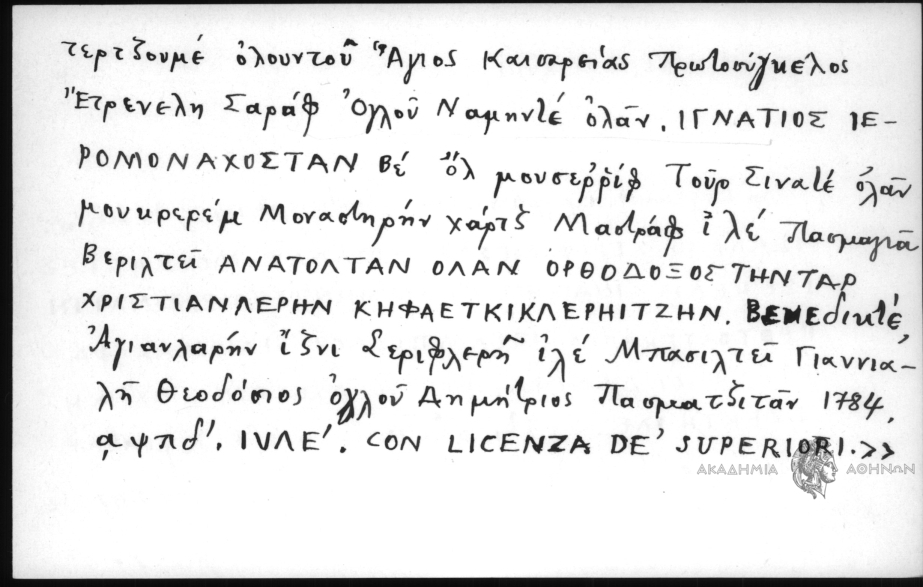 τερτζουμέ ὀλουντοῦ Ἅγιος Καισαρείας Πρωτοσύγκελος
Ἔτρενελη Σαράφ Ὀγλοῦ Ναμηντέ ὀλᾶν. ΙΓΝΑΤΙΟΣ ΙΕ-
ΡΟΜΟΝΑΧΟΣΤΑΝ Βέ ὅλ μουσερρίφ Τοῦρ Σιναϊέ ὀλᾶν
μουκρερέμ Μοναστηρήν χάρτζ Μαστράφ ἰλέ Πασμαγιᾶ
Βεριλτεῖ ΑΝΑΤΟΛΤΑΝ ΟΛΑΝ ΟΡΘΟΔΟΞΟΣΤΗΝΤΑΡ
ΧΡΙΣΤΙΑΝΛΕΡΗΝ ΚΗΦΑΕΤΚΙΚΛΕΡΗΙΤΖΗΝ. Βενεδικτέ,
Ἁγιανλαρήν ἴζνι Σεριφλερῆ ἰλέ Μπασιλτεῖ Γιαννια-
λῆ Θεοδόσιος ὀγλοῦ Δημήτριος Πασματζιτᾶν 1784,
͵αψπδ'. ΙΥΛΕ'. CON LICENZA DE' SUPERIORI.>>
ΑΚΑΔΗΜΙΑ ΑΘΗΝΩΝ